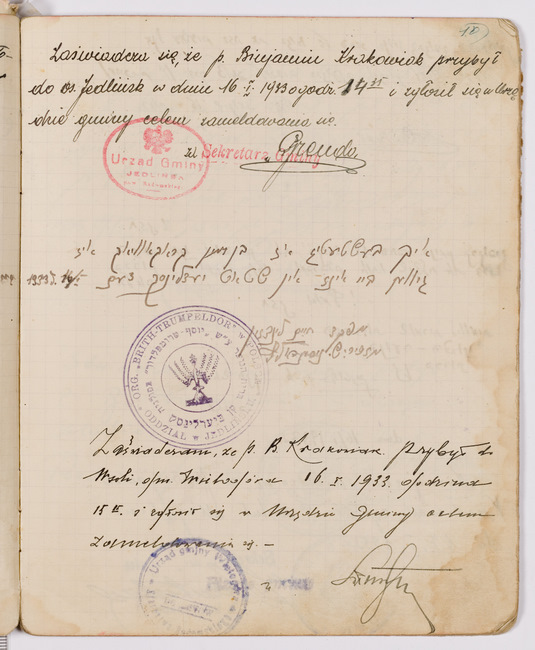 10)
Zaświadcza się, że p. Binjamin Krakowiak przybył
do os. Jedlińsk w dniu 16 I. 1933 o godz. 14 35 i zgłosił się w Urzę
dzie gminy celem zameldowania się.
Sekretarz Gminy
Grenda
Urząd Gminy
JEDLIŃSK
איך בעשטעטיג אז בנימין קראקאוויאק איז
געווען ביי אונז אין שטאט יעדלינסק דעם 16/I 1933
ORG. "BRITH-TRUMPELDOR" w
ODDZIAŁ w
Zaświadczam, że p. B. Krakowiak przybył do
Wsoli, gm. 16. I. 1933. godzina
15 i zgłosił się w Urzędzie Gminy celem
zameldowania się. —
Urząd gminy